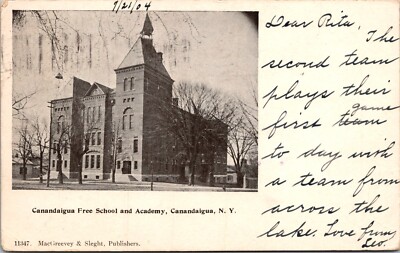 7/21/04
Dear Rita, The
second team
plays their
game
first team
to day with
a team from
across the
lake. Love from
Leo.
Canandaigua Free School and Academy, Canandaigua, N. Y.
11347. MacGreevey & Sleght, Publishers.